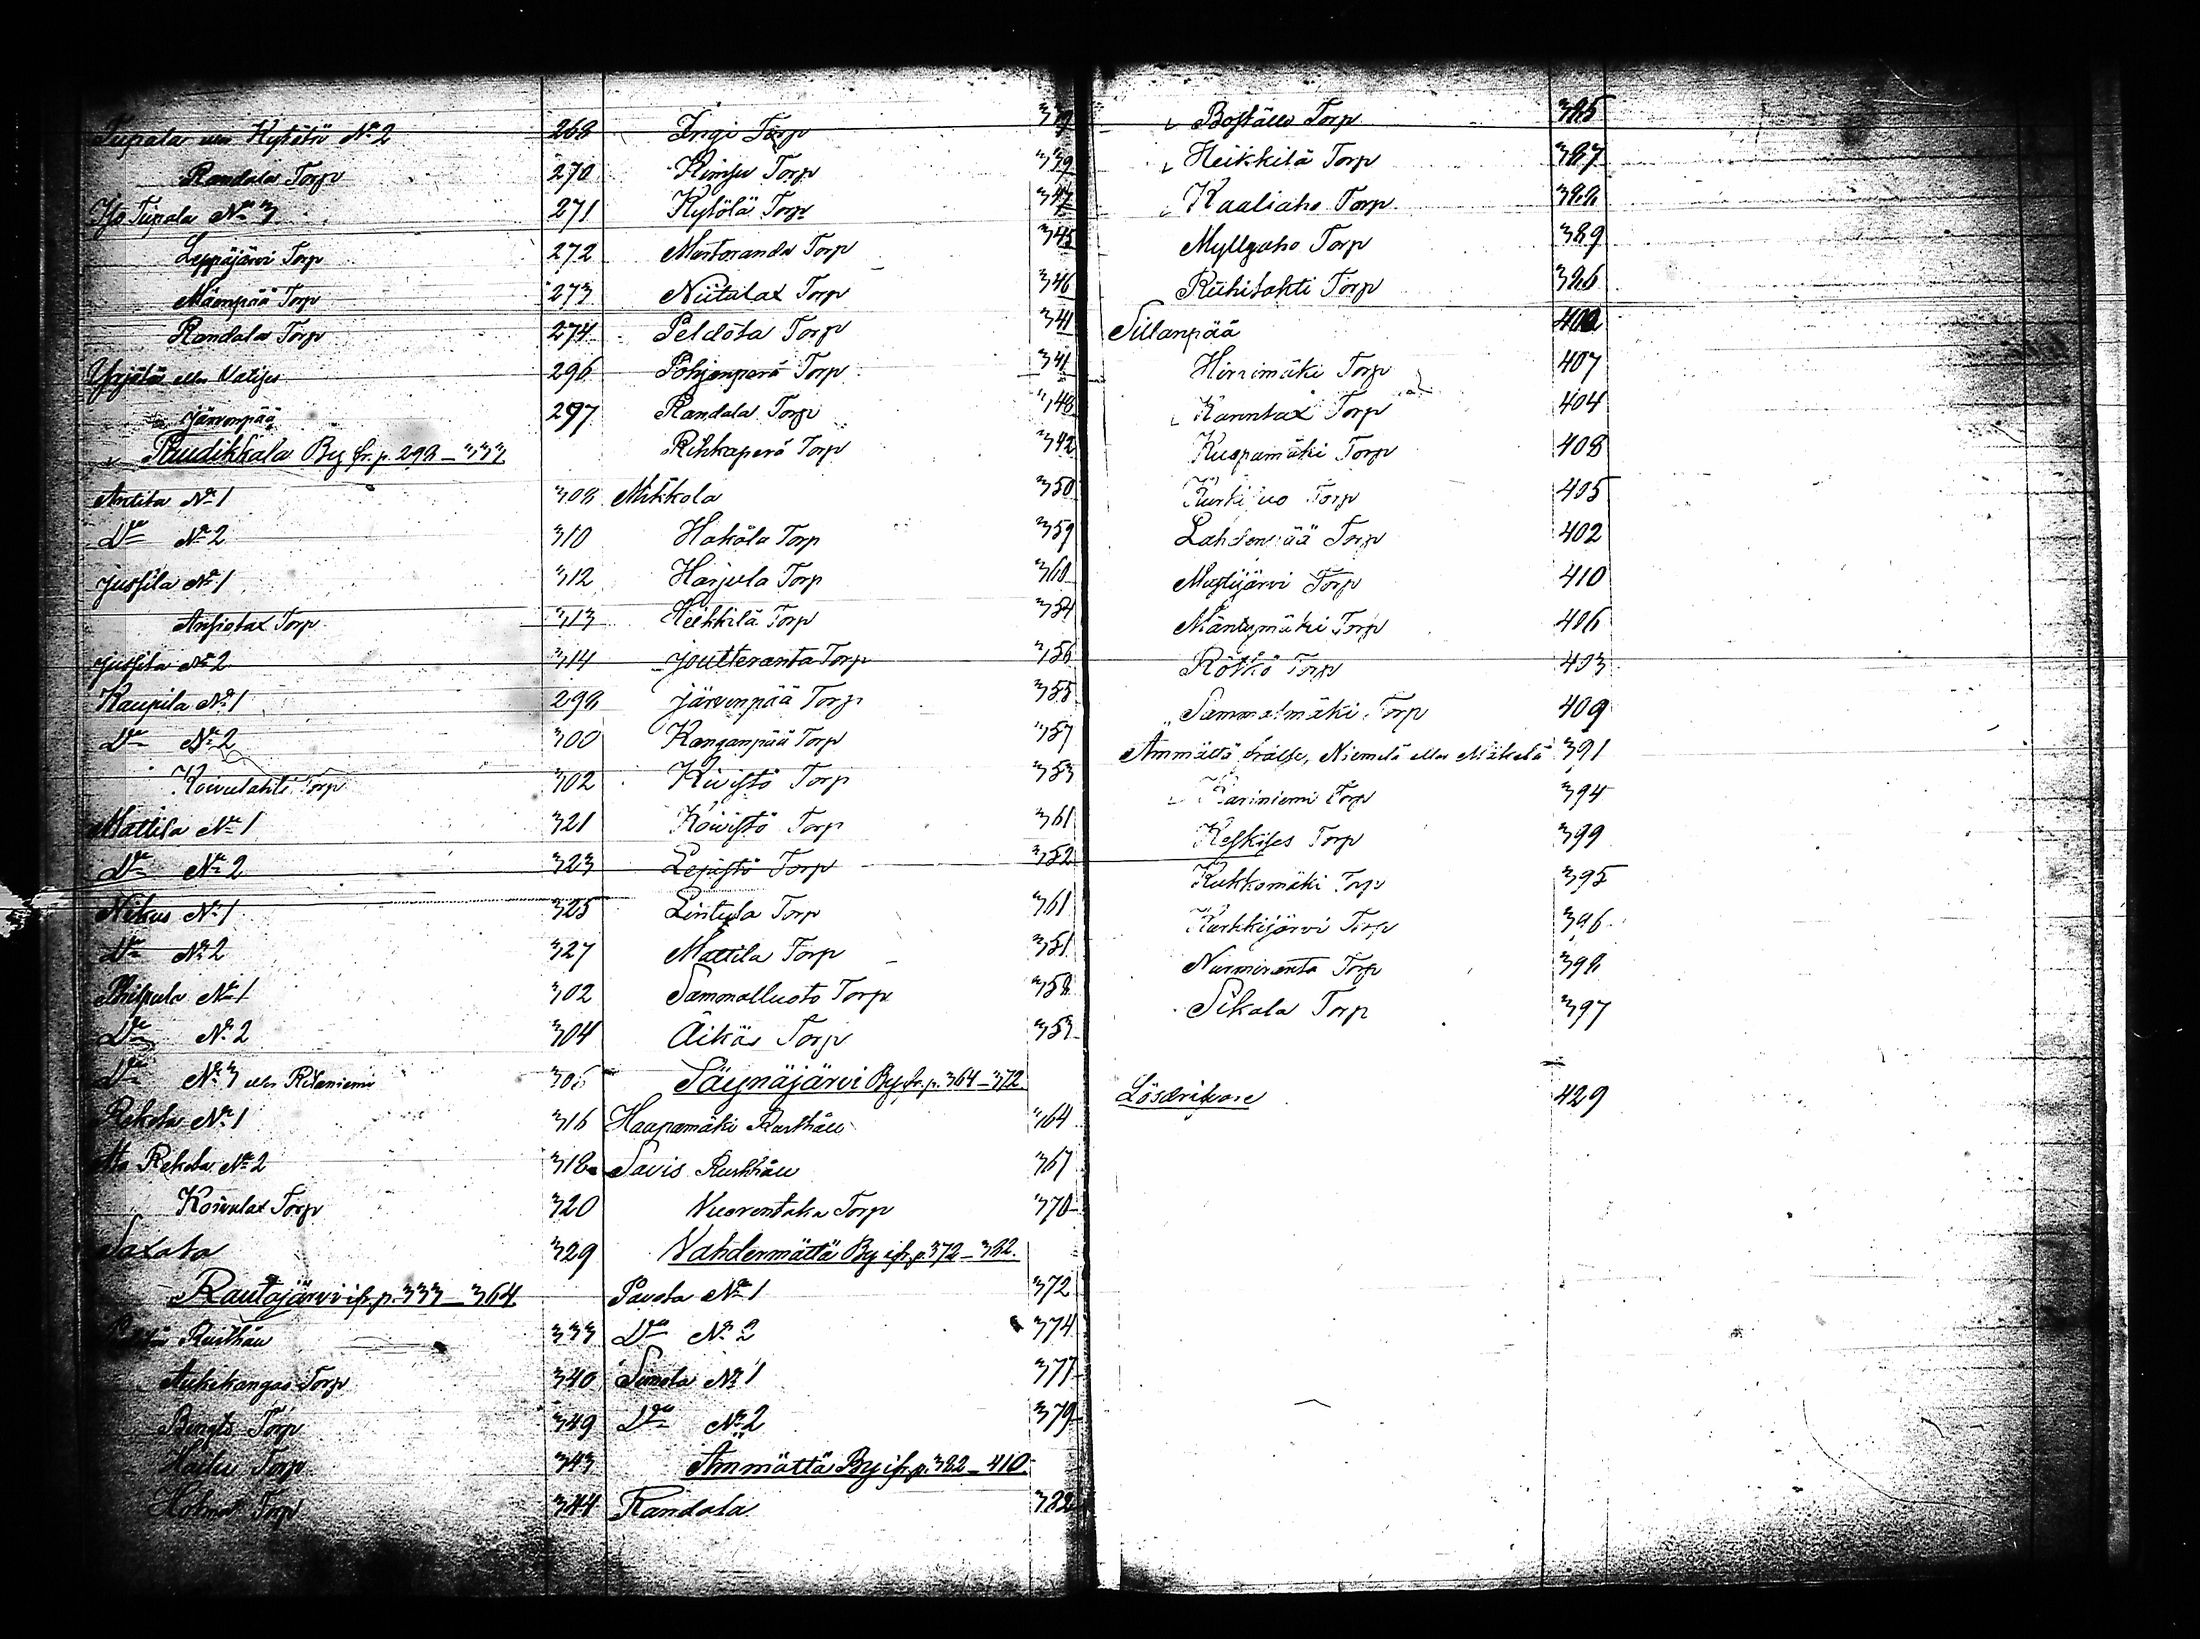 Tupala eller Kylölä No 2 268
Randala Torp 270
Iso Tupala No 3 271
Leppäjärvi Torp 272
Mäenpää Torp 273
Randala Torp 274
Yrjölä eller 296
Järvenpää 297
Puudikkala By fr. p. 298–333
Antila No 1 308
Do No 2 310
Jussila No 1 312
Ansiolax Torp 313
Jussila No 2 314
Kaupila No 1 298
Do No 2 300
Koivulahti Torp 302
Mattila No 1 321
Do No 2 323
Nikus No 1 325
Do No 2 327
Philpula No 1 302
Do No 2 304
Do No 3 eller Ritaniemi 306
Rekola No 1 316
Ala Rekola No 2 318
Koivulax Torp 320
Saxala 329
Rautajärvi ifr. p. 333–364
Rusthåll 333
Auhikangas Torp 340
Bengts Torp 349
Haiku Torp 343
Holma Torp 344
Ingi Torp
Kimsu Torp 339
Kylölä Torp 347
Martoranda Torp 345
Niitulax Torp 346
Peldola Torp 341
Pohjanperä Torp 341
Randala Torp 348
Rihkaperä Torp 342
Mikkola 350
Hakala Torp 359
Harjula Torp 360
Heikkilä Torp 354
Joutteranta Torp 356
Järvenpää Torp 355
Kanganpää Torp 357
Kivistö Torp 353
Koivisto Torp 361
Lepistö Torp 352
Lintula Torp 361
Mattila Torp 351
Sammalluoto Torp 358
Äikäs Torp 353
Säynäjärvi By ifr. p. 364–372
Haapamäki Rusthåll 364
Savis Rusthåll 367
Vuorentaka Torp 370
Vahdermättä By ifr. p. 372–382.
Pavola No 1 372
Do No 2 374
Simola No 1 377
Do No 2 379
Ämmättä By ifr. p. 382–410
Randala 382
Boställe Torp 385
Heikkilä Torp 387
Kaaliaho Torp 388
Myllyaho Torp 389
Riihilahti Torp 386
Sillanpää 402
Hirsimäki Torp 407
Kanntax Torp 404
Kuspamäki Torp 408
Torp 405
Lahdenpää Torp 402
Mustijärvi Torp 410
Mäntymäki Torp 406
Rötkö Torp 403
Sammalmäki Torp 409
Ämmättä frälse, Niemelä eller Mäkelä 391
Kariniemi Torp 394
Keskises Torp 399
Kukkomäki Torp 395
Kurkkijärvi Torp 396
Nurmiranta Torp 398
Sikala Torp 397
Lösdrifvare 429